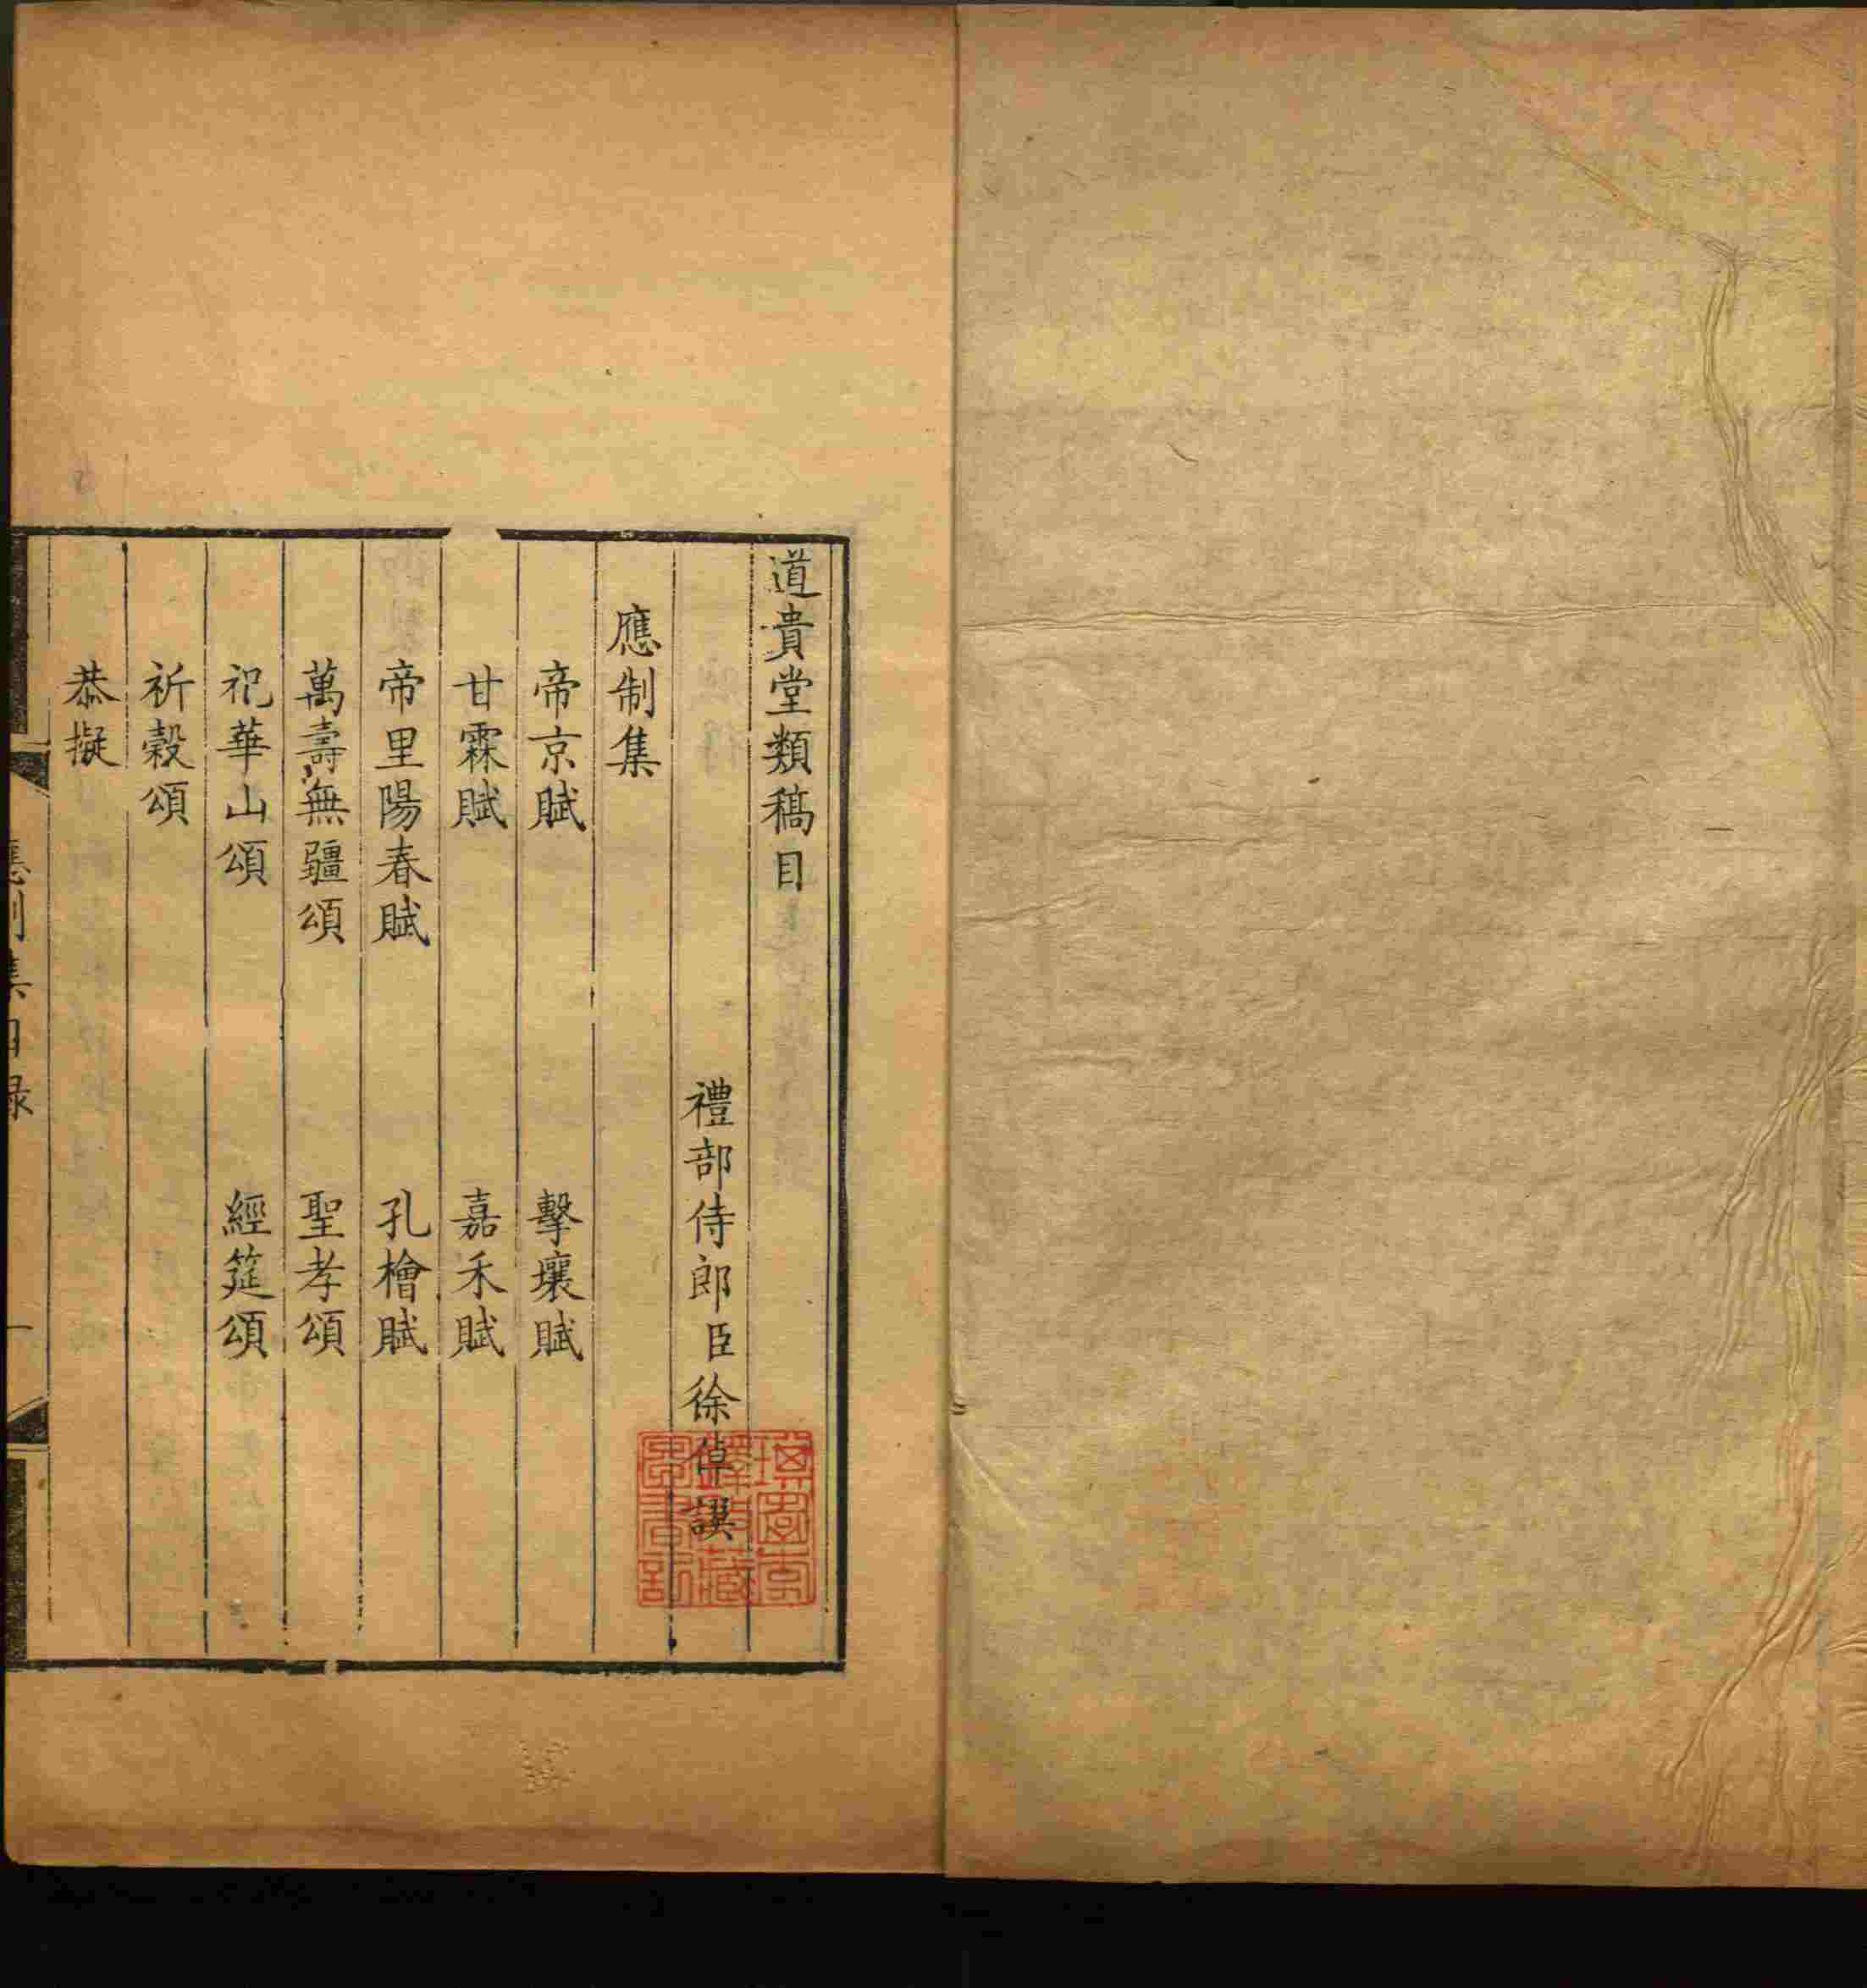 道貴堂類稿目
禮部侍郎臣徐倬譔
應制集
帝京賦 擊壤賦
甘霖賦 嘉禾賦
帝里陽春賦 孔檜賦
萬壽無疆頌 聖孝頌
祀華山頌 經筵頌
祈穀頌
恭擬
應制集目錄 一